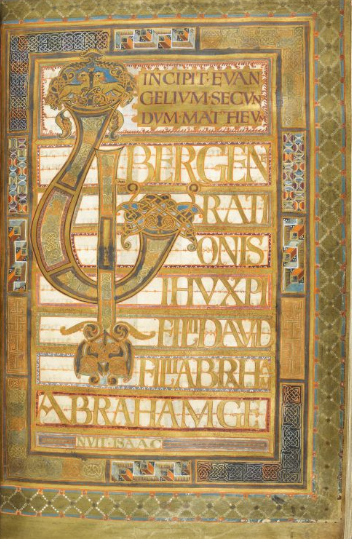 INCIPIT·EVAN
GELIVM·SECVN
DVM·MATHEV
LIBERGEN
ERATI
ONIS
IHVXPI
FILII DAVID
FILII ABRHA
ABRAHAMGE
NVIT ISAAC